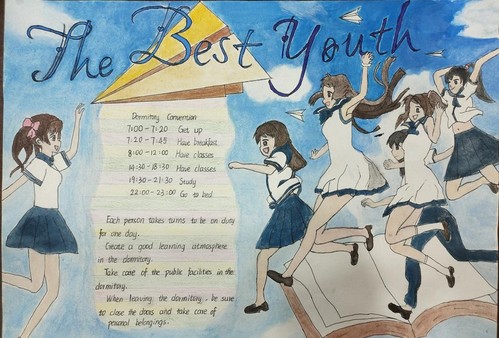 The Best Youth
Dormitory Convention
7:00-7:20 Get up
7:20-7:45 Have breakfast
8:00-12:00 Have classes
14:30-18:30 Have classes
19:30-21:30 Study
22:00-23:00 Go to bed
Each person takes turns to be on duty
for one day.
Create a good learning atmosphere
in the dormitory.
Take care of the public facilities in the
dormitory.
When leaving the dormitory, be sure
to close the doors and take care of
personal belongings.